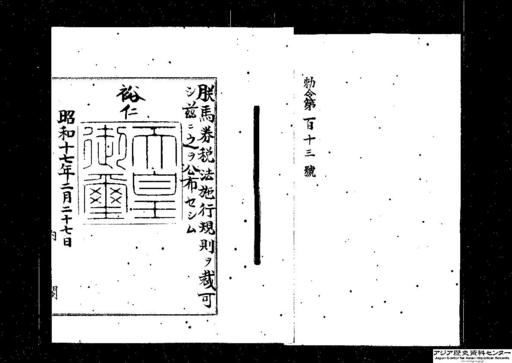 勅令第百十三號
朕馬券税法施行規則ヲ裁可
シ茲ニ之ヲ公布セシム
裕仁
天皇御璽
昭和十七年二月二十七日
内閣
アジア歴史資料センター
Japan Center for Asian Historical Records